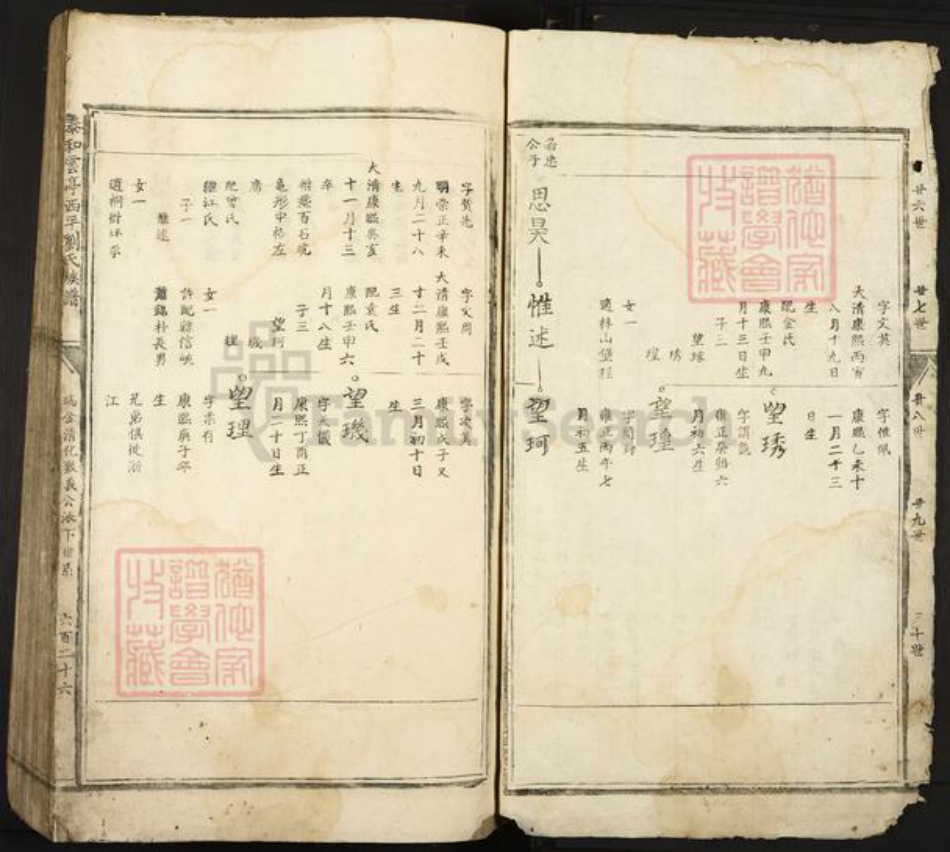 廿六世
廿七世
廿八世
廿九世
三十世
字文英
大清康熙丙寅
八月十九日
生
配金氏
康熙壬申九
月十三日生
子三
望琇
瑝
女一
適林山堡程
字惟佩
康熙乙未十
一月二十三
日生
望琇
雍正癸卯六
月初六生
望瑝
雍正丙午七
月初五生
公子
思昊
惟述
望珂
字贊先
明崇正辛未
九月二十八
生
大清康熙癸亥
十一月十三
卒
龜形中格左
配曾氏
繼江氏
子一
惟述
女一
字文周
大清康熙壬戌
十二月二十
三生
配袁氏
康熙壬申六
月十八生
子三
望珂
璣
理
女一
蕭錫朴長男
字次美
康熙戊子又
三月初十日
生
望璣
字大儀
康熙丁酉正
月二十日生
望理
字柔有
康熙庚子年
生
兄弟俱徙浙
江
泰和雲亭西平劉氏族譜
瑞金清化敦義公派下世系
六百二十六
猶他家
譜學會
收藏
猶他家
譜學會
收藏
FamilySearch